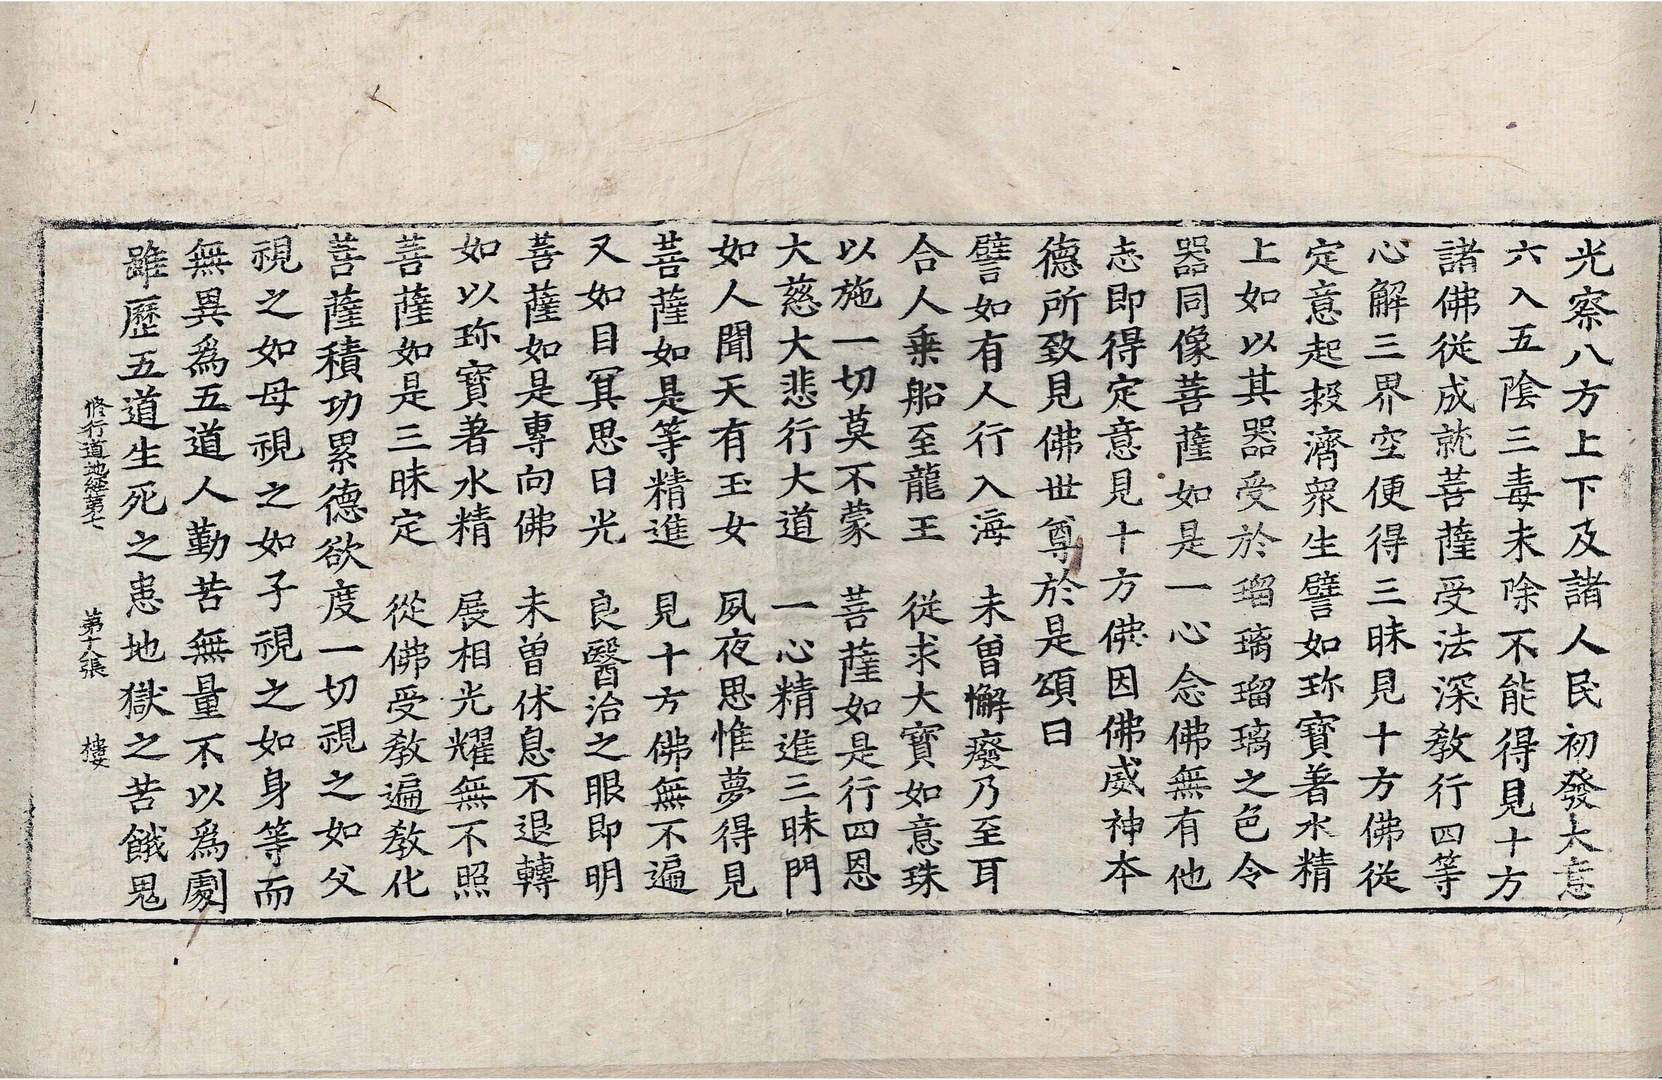 光察八方上下及諸人民初發大意
六入五陰三毒未除不能得見十方
諸佛從成就菩薩受法深教行四等
心解三界空便得三昧見十方佛從
定意起救濟衆生譬如珎寶著水精
上如以其器受於瑠璃瑠璃之色令
器同像菩薩如是一心念佛無有他
志即得定意見十方佛因佛威神本
德所致見佛世尊於是頌曰
譬如有人行入海　未曽懈癈乃至耳
合人乗船至龍王　從求大寶如意珠
以施一切莫不蒙　菩薩如是行四恩
大慈大悲行大道　一心精進三昧門
如人聞天有玉女　夙夜思惟夢得見
菩薩如是等精進　見十方佛無不遍
又如目冥思日光　良醫治之眼即明
菩薩如是專向佛　未曽休息不退轉
如以珎寶著水精　展相光耀無不照
菩薩如是三昧定　從佛受教遍教化
菩薩積功累德欲度一切視之如父
視之如母視之如子視之如身等而
無異爲五道人勤苦無量不以爲劇
雖歷五道生死之患地獄之苦餓鬼
修行道地經第七　第十八張　樓